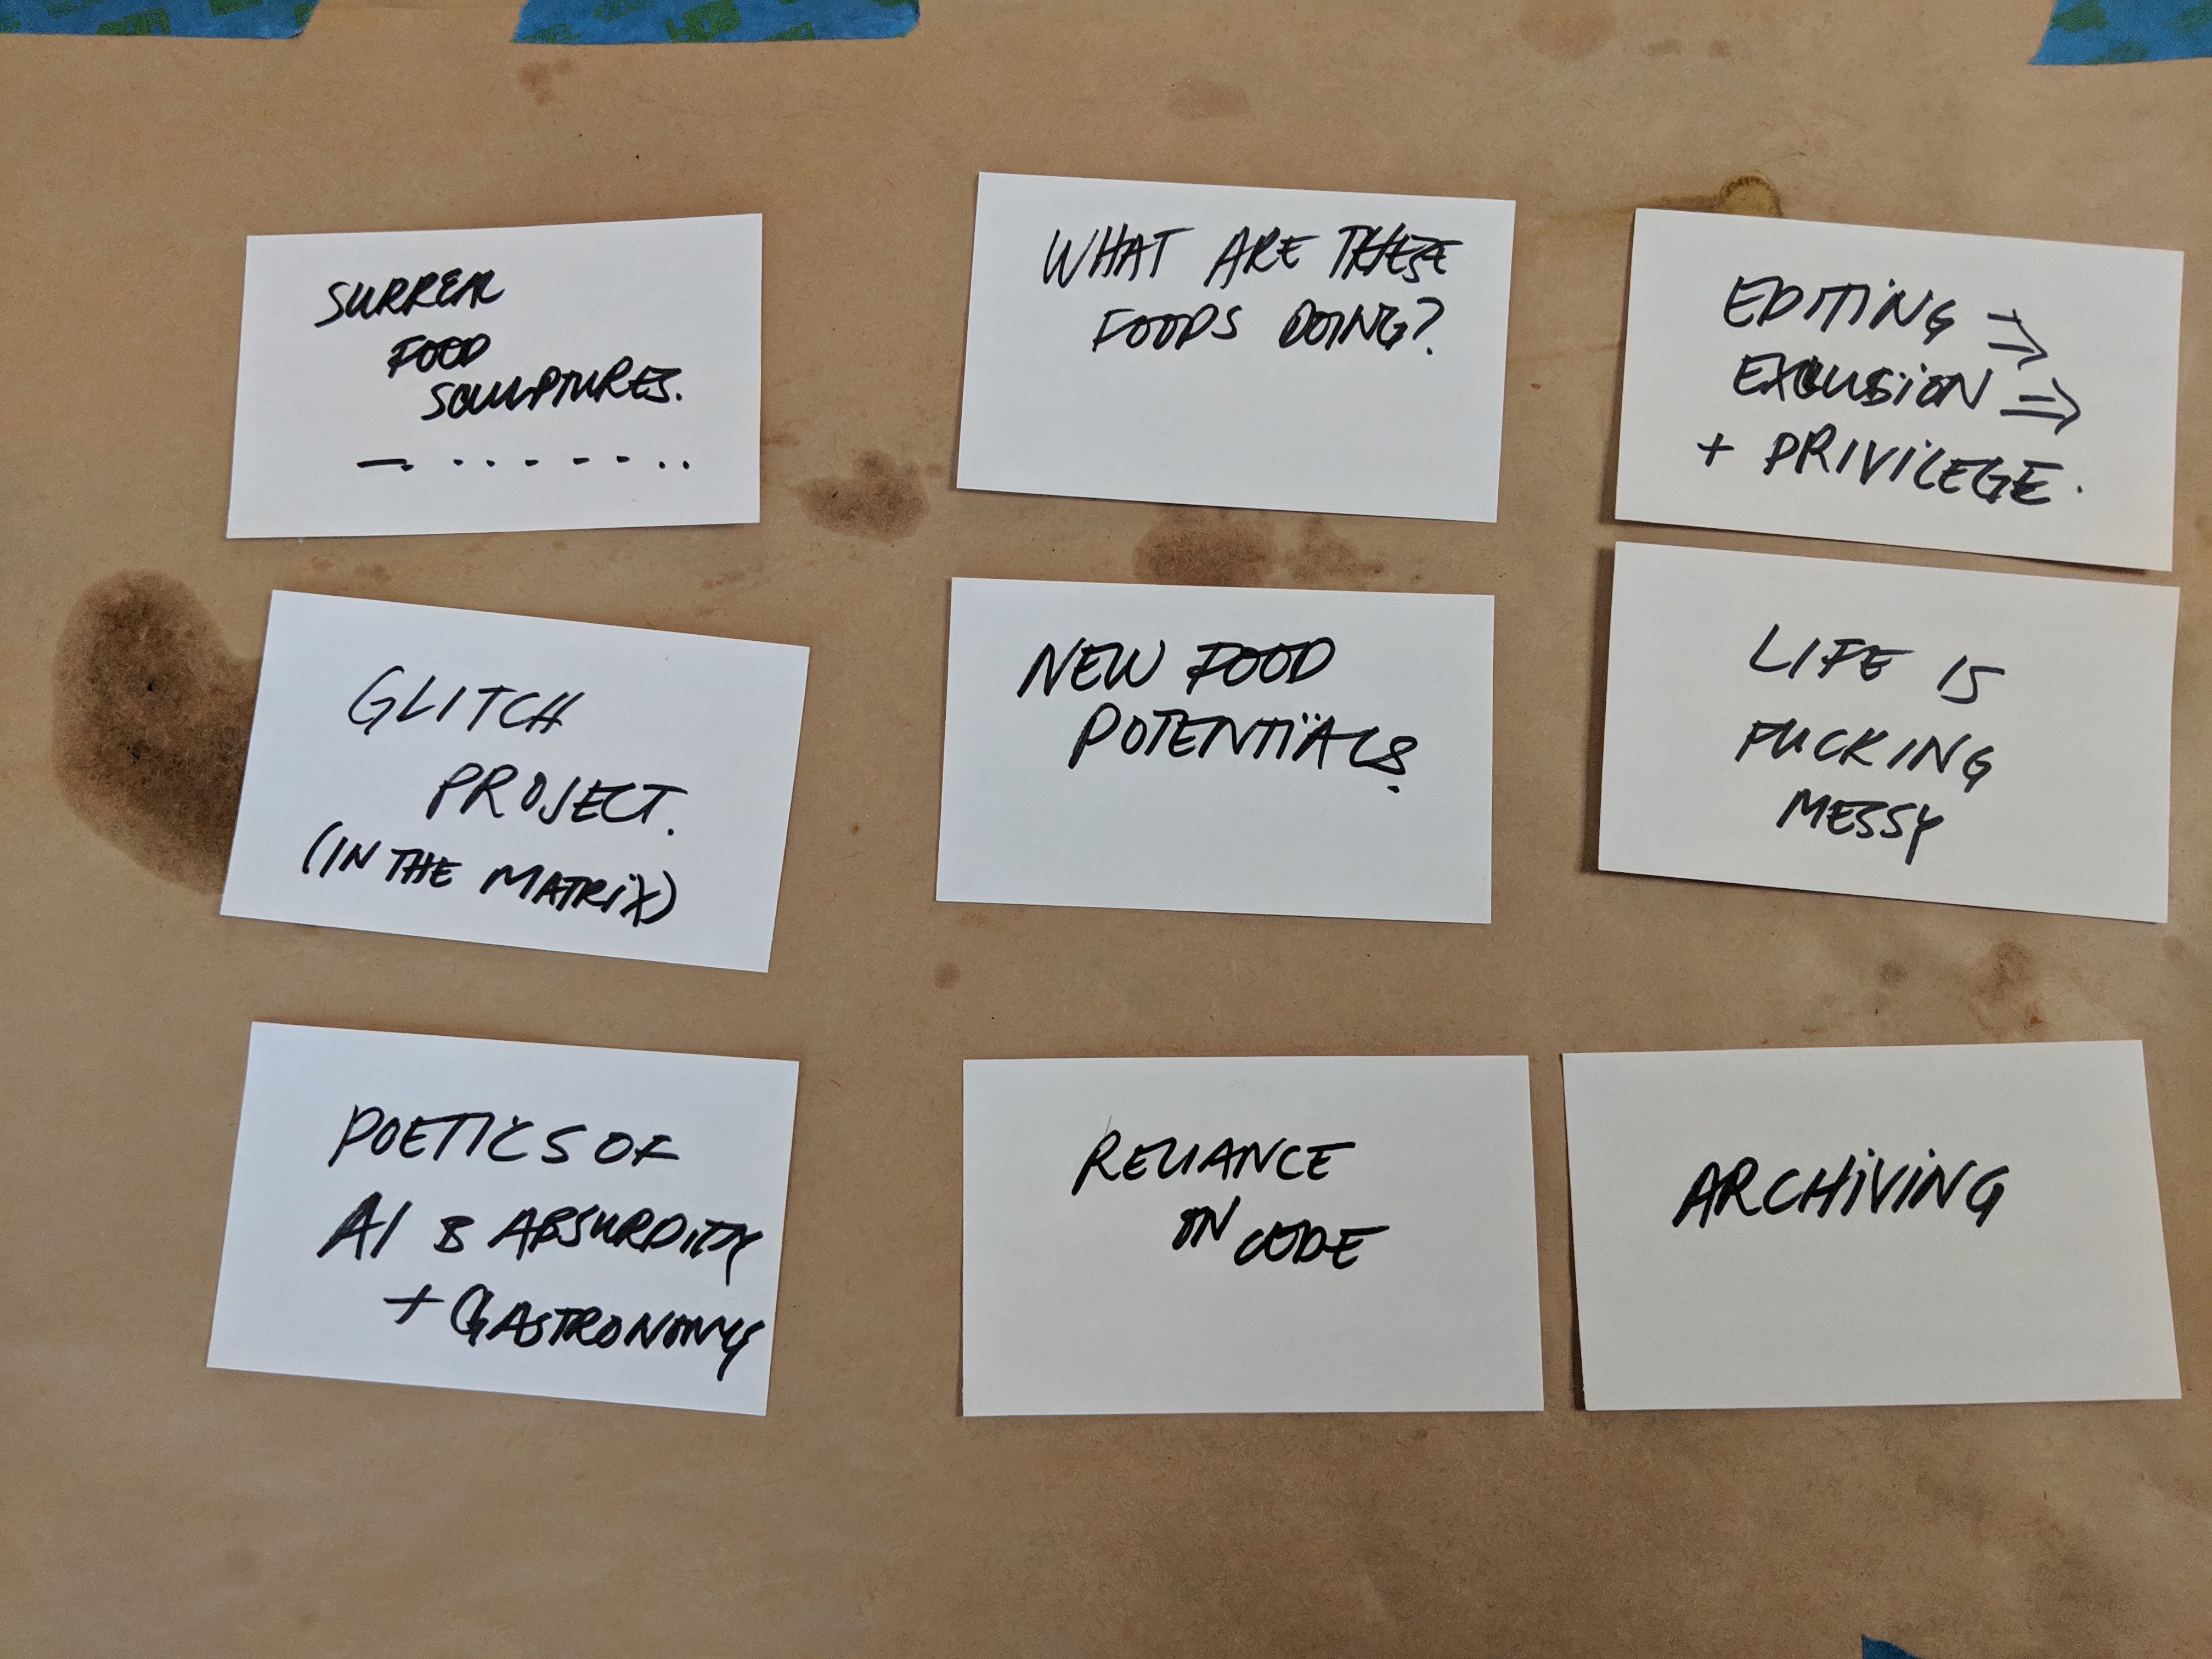 SURREAL
FOOD
SCULPTURES.
WHAT ARE THESE
FOODS DOING?
EDITING ⇒
EXCLUSION ⇒
+ PRIVILEGE.
GLITCH
PROJECT.
(IN THE MATRIX)
NEW FOOD
POTENTIALS
LIFE IS
FUCKING
MESSY
POETICS OF
AI & ABSURDITY
+ GASTRONOMY
RELIANCE
ON CODE
ARCHIVING